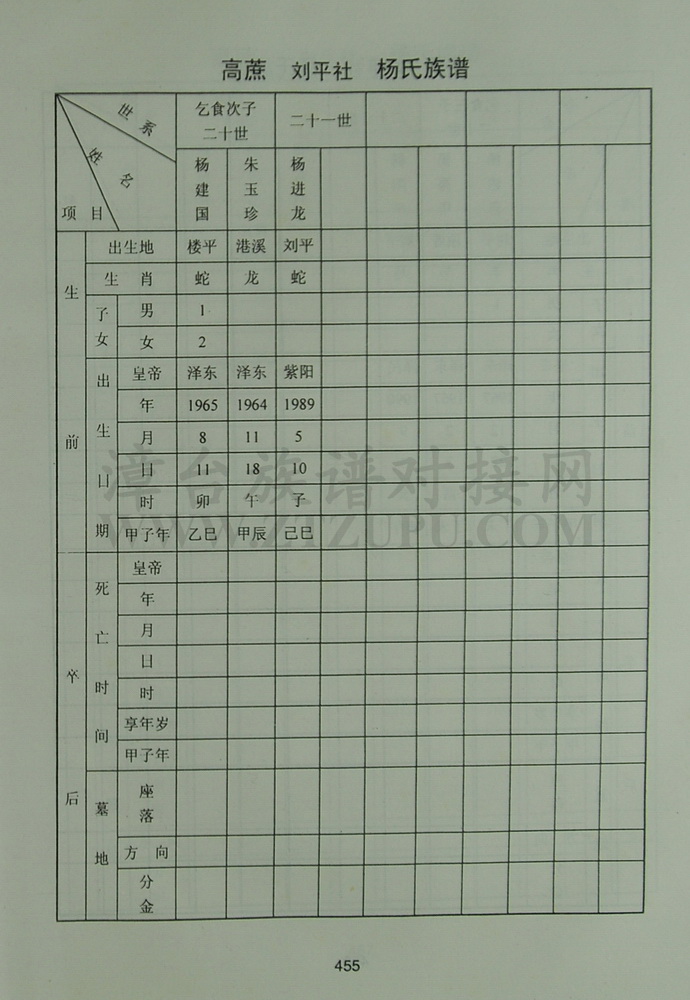 高蔗 刘平社 杨氏族谱
世系 乞食次子 二十一世
二十世
姓名 杨建国 朱玉珍 杨进龙
项目
生前
出生地 楼平 港溪 刘平
生肖 蛇 龙 蛇
子女 男 1
女 2
出生日期 皇帝 泽东 泽东 紫阳
年 1965 1964 1989
月 8 11 5
日 11 18 10
时 卯 午 子
甲子年 乙巳 甲辰 己巳
卒后
死亡时间 皇帝
年
月
日
时
享年岁
甲子年
墓地 座落
方向
分金
漳台族谱对接网
WWW.ZTZUPU.COM
455